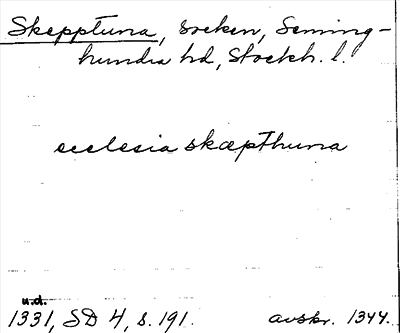 Skepptuna, socken, Seming-
hundra hd, Stockh. l.
ecclesia skæpthuna
u.d.
1331, SD 4, s. 191. avskr. 1344.